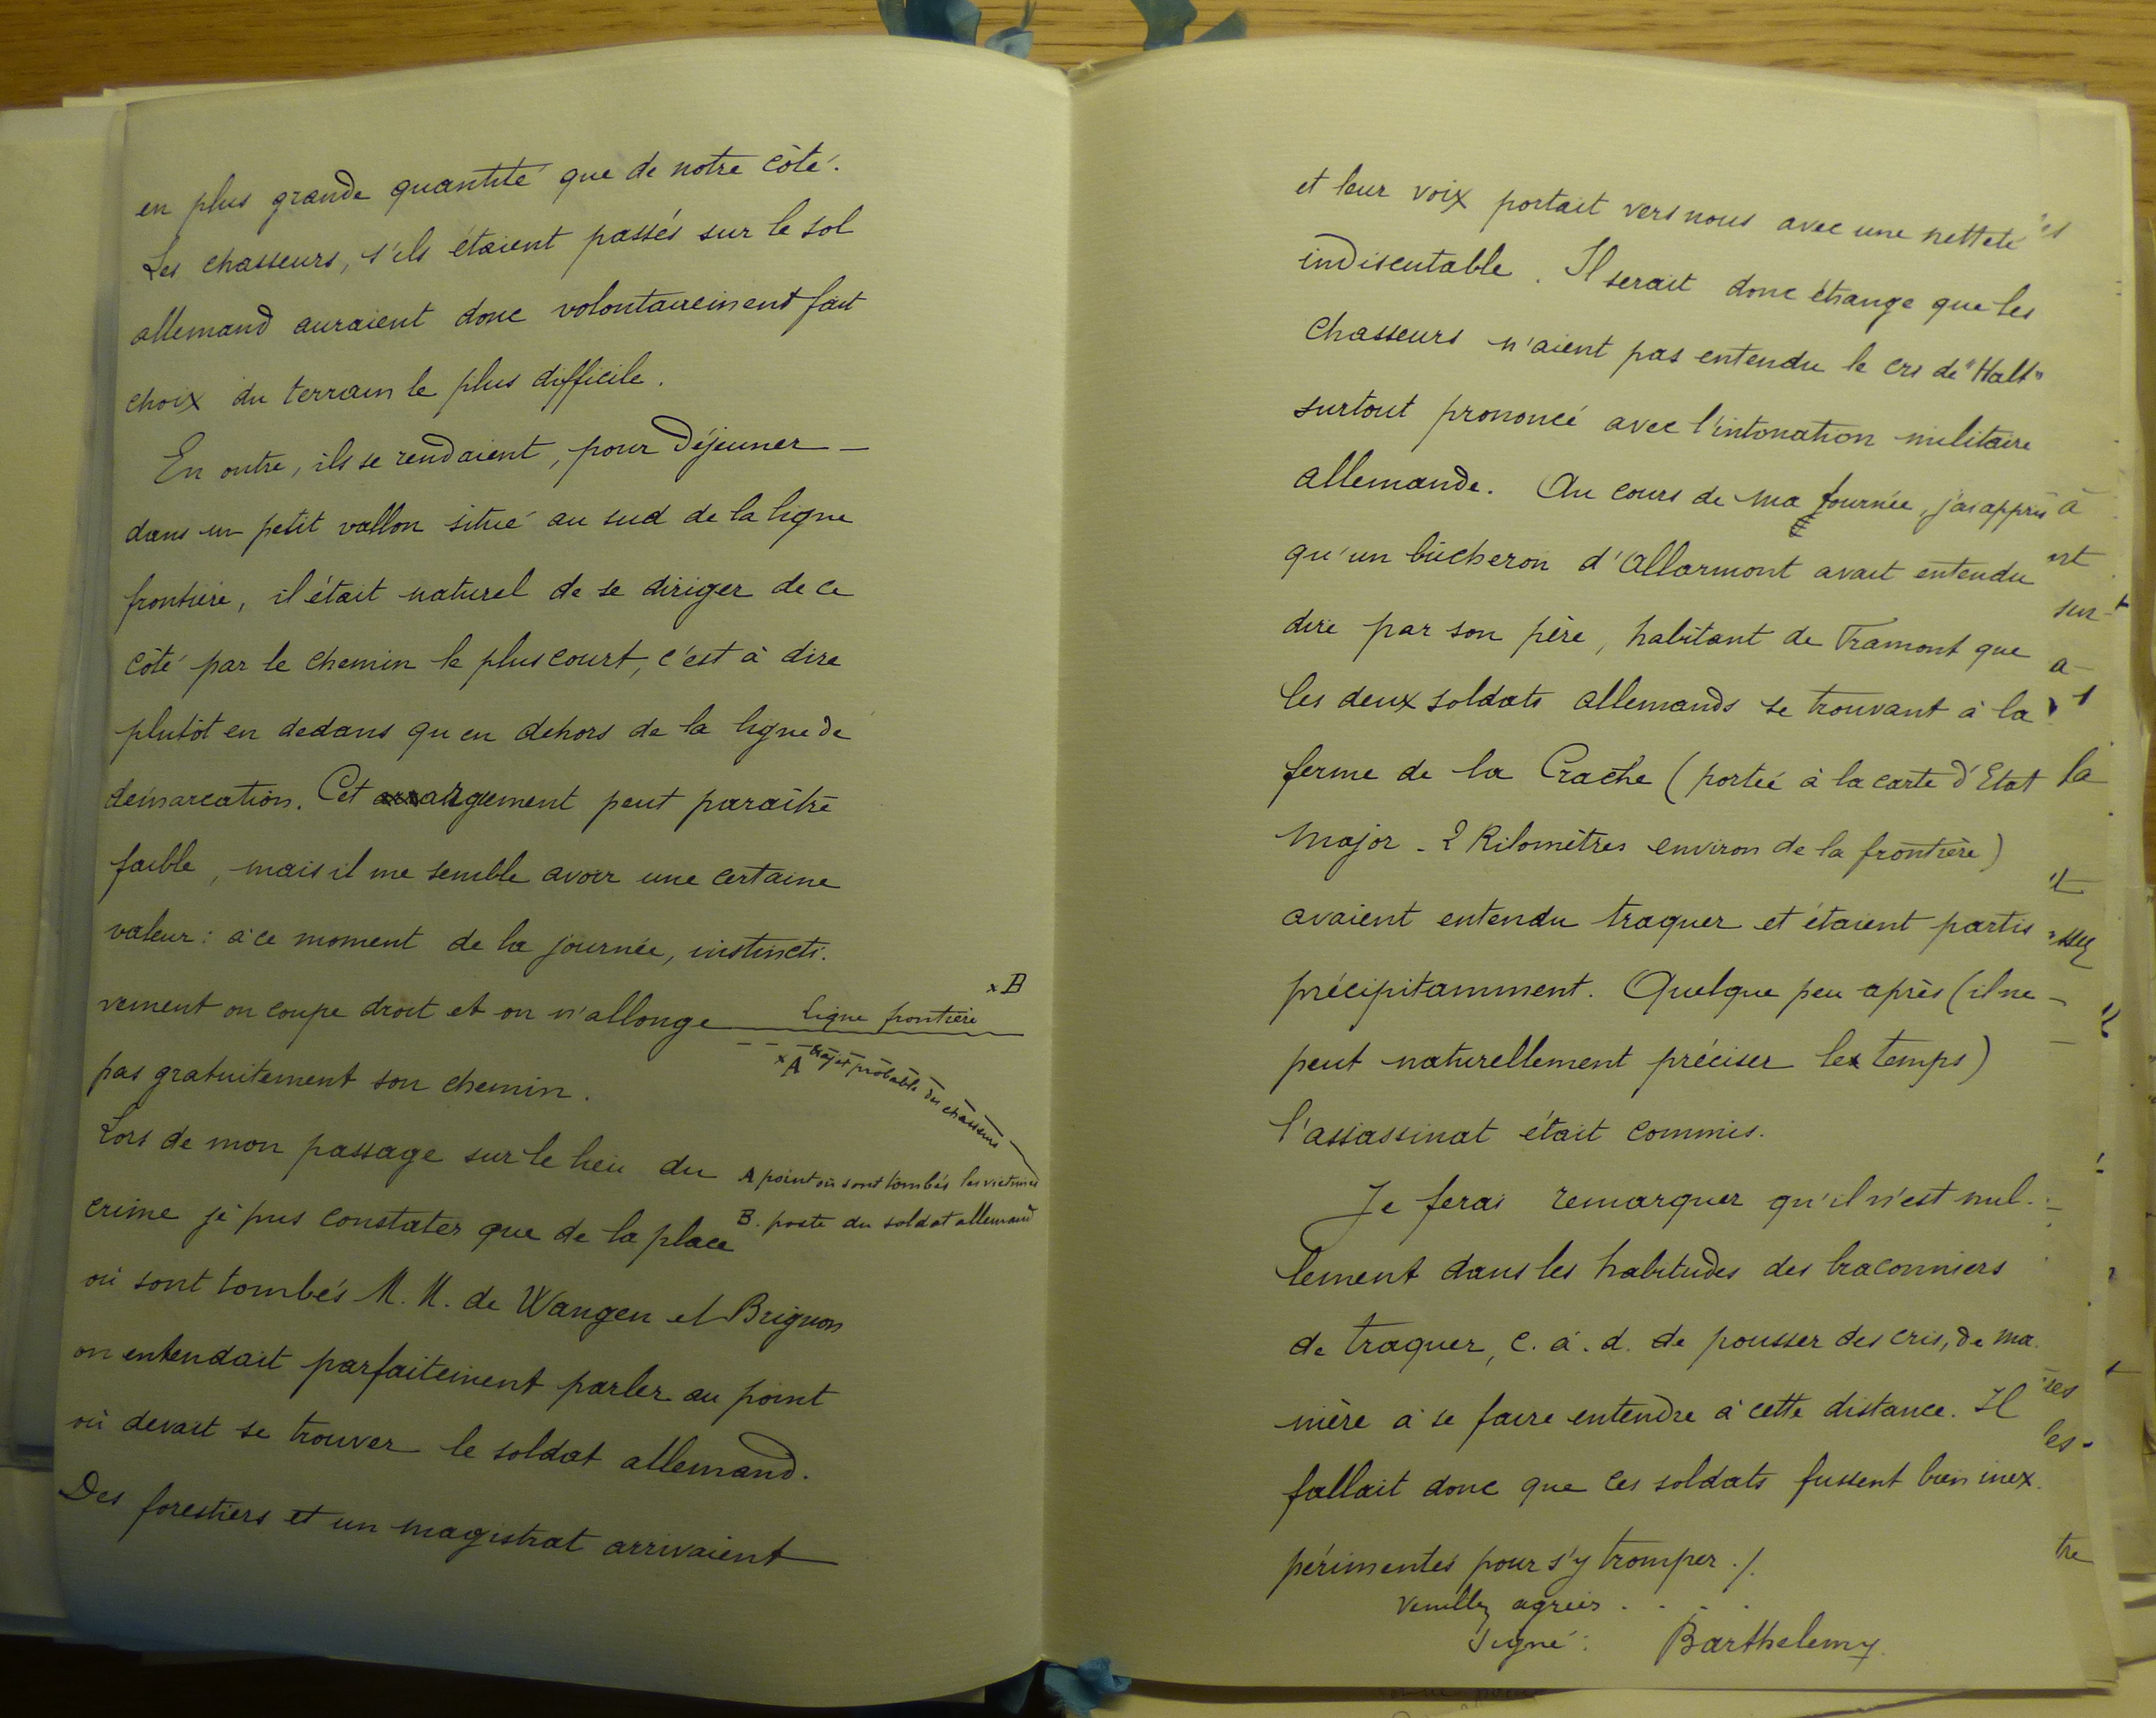 en plus grande quantité que de notre côté.
Les chasseurs, s'ils étaient passés sur le sol
allemand auraient donc volontairement fait
choix du terrain le plus difficile.
En outre, ils se rendaient, pour Déjeuner —
dans un petit vallon situé au sud de la ligne
frontière, il était naturel de se diriger de ce
côté par le chemin le plus court, c'est à dire
plutôt en dedans qu'en dehors de la ligne de
démarcation. Cet argument peut paraître
faible, mais il me semble avoir une certaine
valeur : à ce moment de la journée, instincti-
vement on coupe droit et on n'allonge
pas gratuitement son chemin.
x B
ligne frontière
x A trajet probable des chasseurs
A point où sont tombés les victimes
B. poste du soldat allemand
Lors de mon passage sur le lieu du
crime je pus constater que de la place
où sont tombés M. M. de Wangen et Brignon
on entendait parfaitement parler au point
où devait se trouver le soldat allemand.
Des forestiers et un magistrat arrivaient
et leur voix portait vers nous avec une netteté
indiscutable. Il serait donc étrange que les
chasseurs n'aient pas entendu le cri de "Halt"
surtout prononcé avec l'intonation militaire
allemande. Au cours de ma tournée, j'ai appris
qu'un bûcheron d'Allarmont avait entendu
dire par son père, habitant de Framont que
les deux soldats allemands se trouvant à la
ferme de la Crache (portée à la carte d'Etat
Major - 2 Kilomètres environ de la frontière)
avaient entendu traquer et étaient partis
précipitamment. Quelque peu après (il ne
peut naturellement préciser le temps)
l'assassinat était commis.
Je ferai remarquer qu'il n'est nul-
lement dans les habitudes des braconniers
de traquer, c. à. d. de pousser des cris, de ma-
nière à se faire entendre à cette distance. Il
fallait donc que ces soldats fussent bien inex-
périmentés pour s'y tromper ./.
Veuillez agréer . . . .
Signé : Barthelemy